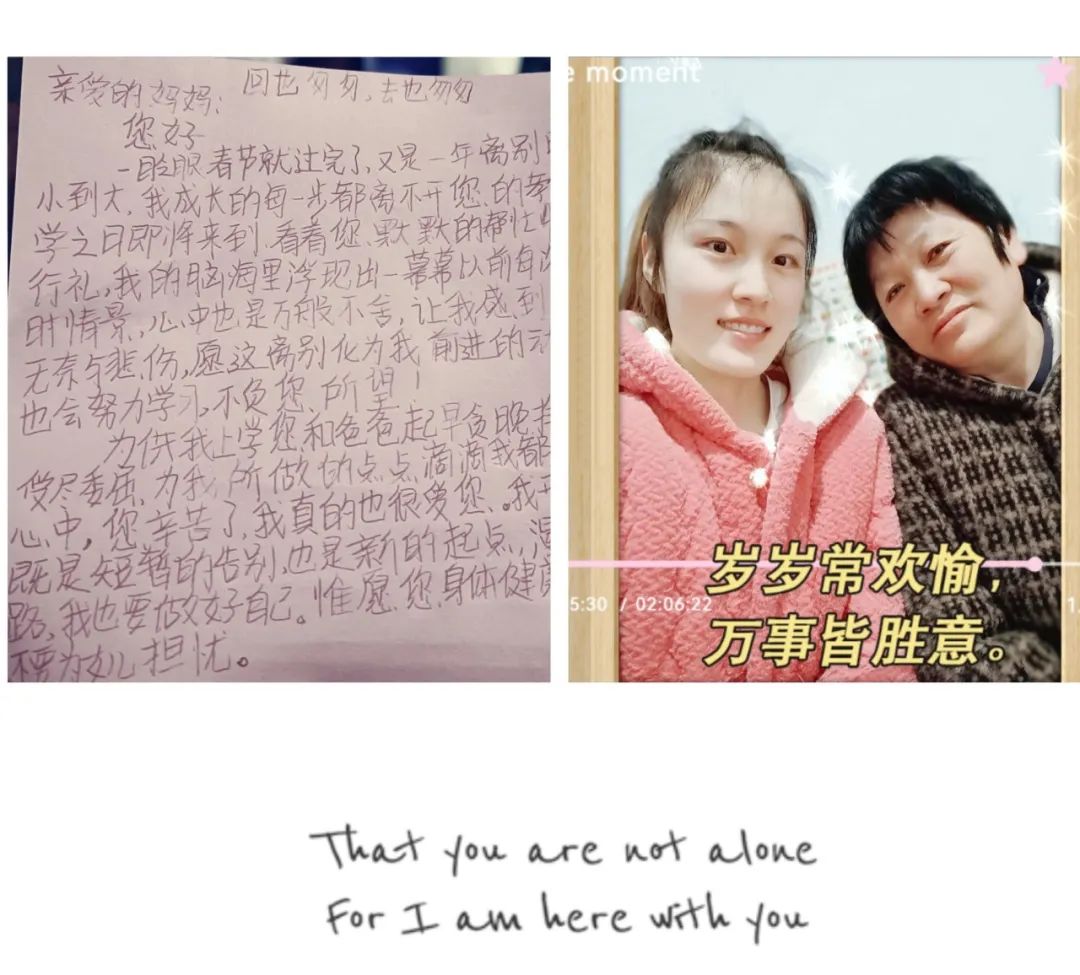 回也匆匆，去也匆匆
亲爱的妈妈：
您好
一眨眼春节就过完了，又是一年离别
小到大，我成长的每一步都离不开您的教
学之日即将来到，看着您默默的帮忙
行礼，我的脑海里浮现出一幕幕以前每
时情景，心中也是万般不舍，让我感到
无奈与悲伤，愿这离别化为我前进的动
也会努力学习，不负您所望！
为供我上学您和爸爸起早贪晚
受尽委屈，为我所做的点点滴滴我都
心中，您辛苦了，我真的也很爱您。我
既是短暂的告别，也是新的起点，漫
路，我也要做好自己。惟愿您身体健康
不要为女儿担忧。
e moment
岁岁常欢愉，
5:30 / 02:06:22
1
万事皆胜意。
That you are not alone
For I am here with you